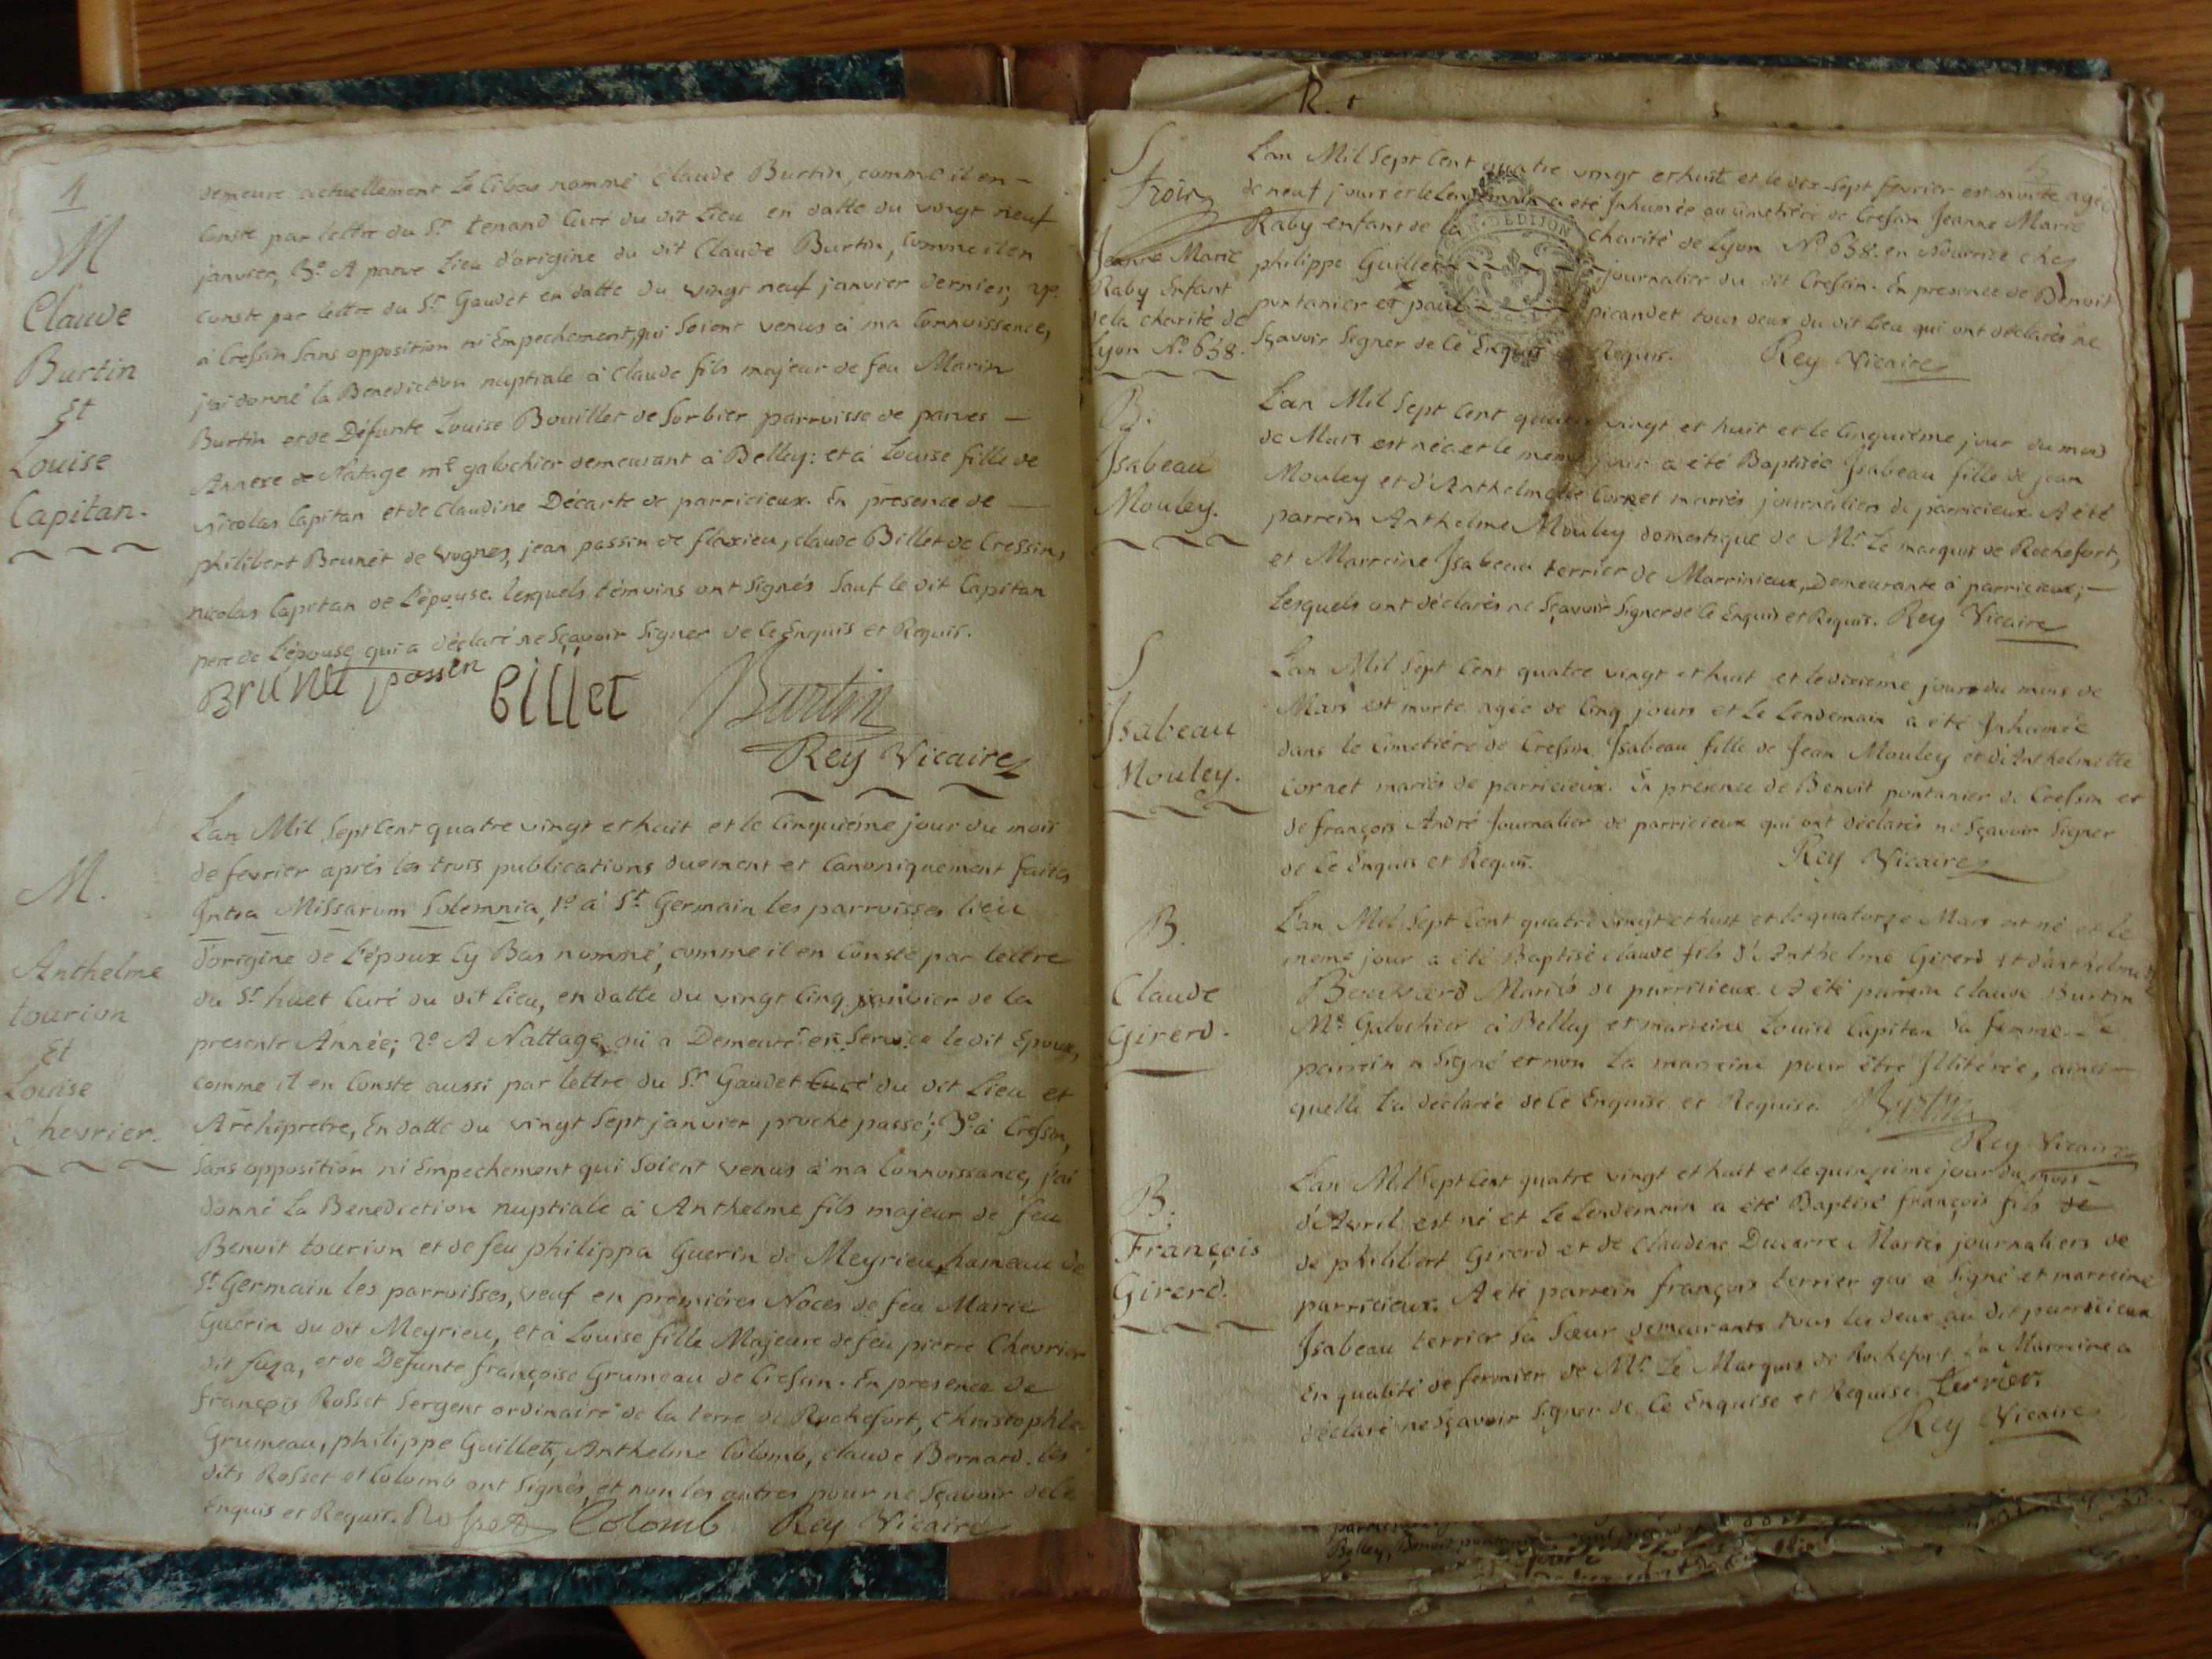 4
M
Claude
Burtin
Et
Louise
Capitan.
demeure actuellement Le Cibas nommé Claude Burtin, comme il en
Conste par lettre du Sr tenand Curé du dit Lieu en datte du vingt neuf
janvier, 3o A parve Lieu d'origine du dit Claude Burtin, Comme il en
Conste par lettre du Sr Gaudet en datte du vingt neuf janvier dernier,
à Cressin sans opposition ni Empechement, qui Soient venus à ma Connoissance,
j'ai donné la Benediction nuptiale à Claude fils majeur de feu Marin
Burtin et de Défunte Louise Bouillet de Sorbier parroisse de parves
Annexe de Natage me galochier demeurant à Belley: et à Louise fille de
Nicolas Capitan et de Claudine Décarte de parricieux. En presence de
philibert Brunet de vognes, jean passin de flaxieu, claude Billet de Cressin,
nicolas Capitan de L'épouse lesquels témoins ont Signés Sauf le dit Capitan
pere de L'épouse qui a déclaré ne Sçavoir Signer de Ce Enquis et Requis.
Brunet passin Billet Burtin
Rey Vicaire
M.
Anthelme
tourion
Et
Louise
Chevrier.
Lan Mil Sept Cent quatre vingt et huit et le Cinquiéme jour du mois
de fevrier aprés les trois publications duement et Canoniquement faites
Intra Missarum Solemnia, 1o à St Germain les parroisses lieu
d'origine de L'époux Cy Bas nommé, comme il en Conste par lettre
du Sr huet Curé du dit Lieu, en datte du vingt Cinq janvier de la
presente Année; 2o A Nattage où a Demeuré en Service le dit Epoux,
Comme il en Conste aussi par lettre du Sr Gaudet Curé du dit Lieu et
Archipretre, En datte du vingt Sept janvier proche passé; 3o à Cressin,
Sans opposition ni Empechement qui Soient venus à ma Connoissance, j'ai
donné La Benediction nuptiale à Anthelme fils majeur de feu
Benoit tourion et de feu philippa Guerin de Meyrieu hameau de
St Germain les parroisses, veuf en premiéres Noces de feu Marie
Guerin du dit Meyrieu, et à Louise fille Majeure de feu pierre Chevrier
dit fuza, et de Defunte françoise Grumeau de Cressin. En presence de
François Rosset Sergent ordinaire de la terre de Rochefort, Christophle
Grumeau, philippe Guillet, Anthelme Colomb, Claude Bernard. les
dits Rosset et Colomb ont Signés, et non les autres pour ne Sçavoir de Ce
Enquis et Requis. Rosset Colomb Rey Vicaire
S
Jeanne Marie
Raby Enfant
de la charité de
Lyon No 638.
Lan Mil Sept Cent quatre vingt et huit et le dix-Sept fevrier est morte agée
de neuf jours et le Lendemain a été Inhumée au cimetiére de Cressin Jeanne Marie
Raby enfant de la charité de Lyon No 638. en Nourrice chez
philippe Guillet journalier du dit Cressin. En presence de Benoit
pontanier et paul picandet tous deux du dit Lieu qui ont déclarés ne
Sçavoir Signer de Ce Enquis et Requis. Rey Vicaire
B.
Isabeau
Mouley.
L'an Mil Sept Cent quatre vingt et huit et le Cinquiéme jour du mois
de Mars est née et le meme jour a été Baptisée Isabeau fille de jean
Mouley et d'Anthelmette Cornet mariés journaliers de parricieux. A été
parrein Anthelme Mouley domestique de Mr Le marquis de Rochefort,
et Marreine Isabeau terrier de Marrinieux, Demeurante à parricieux;
Lesquels ont déclarés ne Sçavoir Signer de Ce Enquis et Requis. Rey Vicaire
S
Isabeau
Mouley.
Lan Mil Sept Cent quatre vingt et huit et le dixieme jour du mois de
Mars est morte agée de Cinq jours et Le Lendemain a été Inhumée
dans le Cimetiére de Cressin Isabeau fille de Jean Mouley et d'Anthelmette
Cornet mariés de parricieux. En presence de Benoit pontanier de Cressin et
de françois André Journalier de parricieux qui ont déclarés ne Sçavoir Signer
de Ce Enquis et Requis. Rey Vicaire
B.
Claude
Girerd.
L'an Mil Sept Cent quatre vingt et huit et le quatorze Mars est né et le
meme jour a été Baptisé claude fils d'Anthelme Girerd et d'anthelmette
Bouvard Mariés de parricieux. A été parrein claude Burtin
Me Galochier à Belley et marreine Louise Capitan Sa femme. Le
parrein a Signé et non La marreine pour être Illitérée, ainsi
quelle L'a déclarée de Ce Enquise et Requise. Burtin
Rey Vicaire
B.
François
Girerd.
L'an Mil Sept Cent quatre vingt et huit et le quinziéme jour du mois
d'Avril est né et Le Lendemain a été Baptisé françois fils de
de philibert Girerd et de Claudine Ducarre Mariés journaliers de
parricieux. A été parrein françois terrier qui a Signé et marreine
Isabeau terrier Sa Sœur demeurants tous les deux au dit parricieux
En qualité de fermier de Mr Le Marquis de Rochefort, La Marreine a
déclaré ne Sçavoir Signer de Ce Enquise et Requise. terrier.
Rey Vicaire